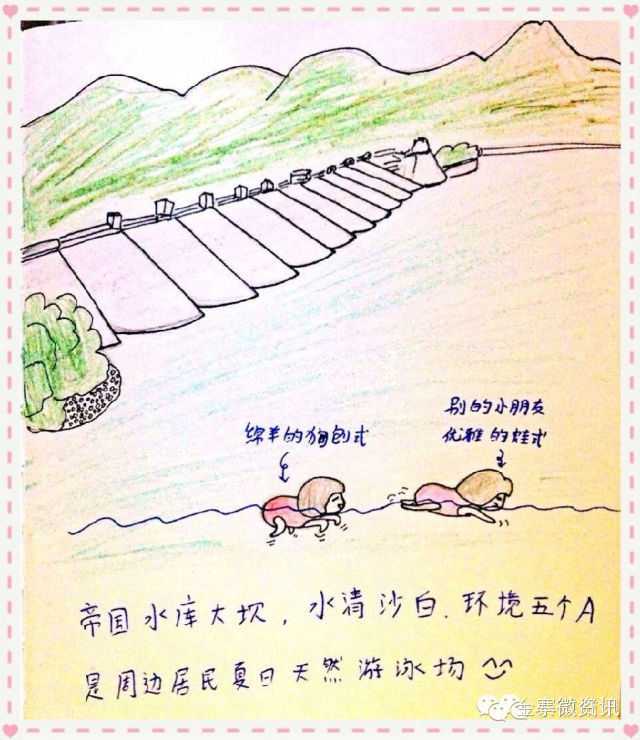 别的小朋友
优雅的蛙式
绵羊的狗刨式
帝国水库大坎，水清沙白．环境五个A
是周边居民夏日天然游泳场
金寨微资讯